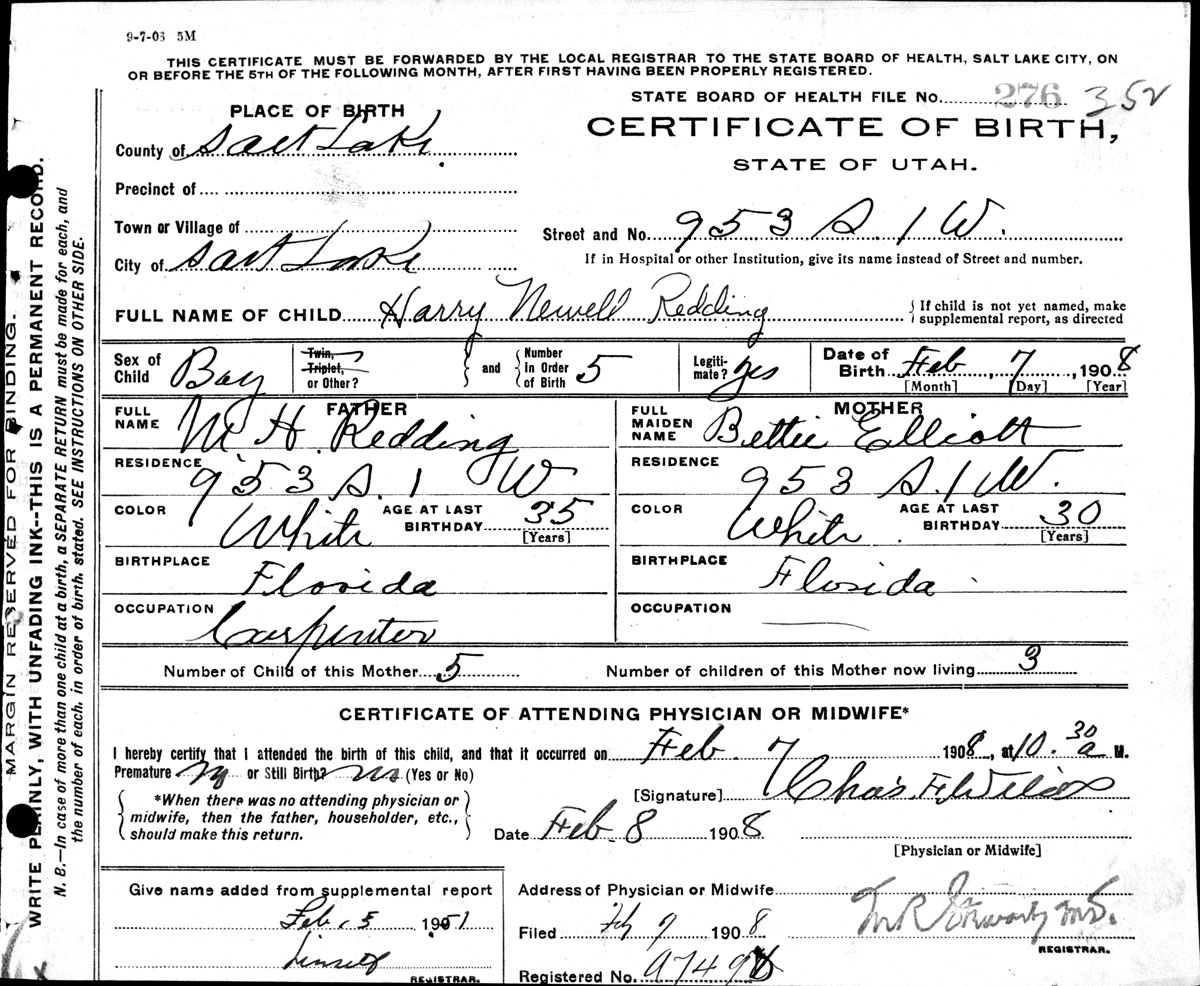 9-7-03 5M
THIS CERTIFICATE MUST BE FORWARDED BY THE LOCAL REGISTRAR TO THE STATE BOARD OF HEALTH, SALT LAKE CITY, ON
OR BEFORE THE 5TH OF THE FOLLOWING MONTH, AFTER FIRST HAVING BEEN PROPERLY REGISTERED.
STATE BOARD OF HEALTH FILE No. 276 352
PLACE OF BIRTH
CERTIFICATE OF BIRTH,
STATE OF UTAH.
County of Salt Lake.
Precinct of
Town or Village of
Street and No. 953 S. 1 W.
City of Salt Lake
If in Hospital or other Institution, give its name instead of Street and number.
FULL NAME OF CHILD Harry Newell Redding { If child is not yet named, make supplemental report, as directed
Sex of Child Boy Twin, Triplet, or Other? and Number In Order of Birth 5 Legiti-mate? yes Date of Birth Feb, 7, 1908
[Month] [Day] [Year]
FATHER MOTHER
FULL NAME M. H. Redding FULL MAIDEN NAME Bettie Elliott
RESIDENCE 953 S. 1 W RESIDENCE 953 S. 1 W.
COLOR White AGE AT LAST BIRTHDAY 35 [Years] COLOR White. AGE AT LAST BIRTHDAY 30 [Years]
BIRTHPLACE Florida BIRTHPLACE Florida
OCCUPATION Carpenter OCCUPATION
Number of Child of this Mother 5 Number of children of this Mother now living 3
CERTIFICATE OF ATTENDING PHYSICIAN OR MIDWIFE*
I hereby certify that I attended the birth of this child, and that it occurred on Feb. 7 1908, at 10.30 a M.
Premature or Still Birth? (Yes or No)
[Signature] Chas. F. Wilcox
*When there was no attending physician or midwife, then the father, householder, etc., should make this return.
Date Feb. 8 1908
[Physician or Midwife]
Give name added from supplemental report
Feb. 5 1951
REGISTRAR.
Address of Physician or Midwife
Filed 1908
REGISTRAR.
Registered No.
MARGIN RESERVED FOR BINDING.
WRITE PLAINLY, WITH UNFADING INK--THIS IS A PERMANENT RECORD.
N. B.—In case of more than one child at a birth, a SEPARATE RETURN must be made for each, and
the number of each, in order of birth, stated. SEE INSTRUCTIONS ON OTHER SIDE.